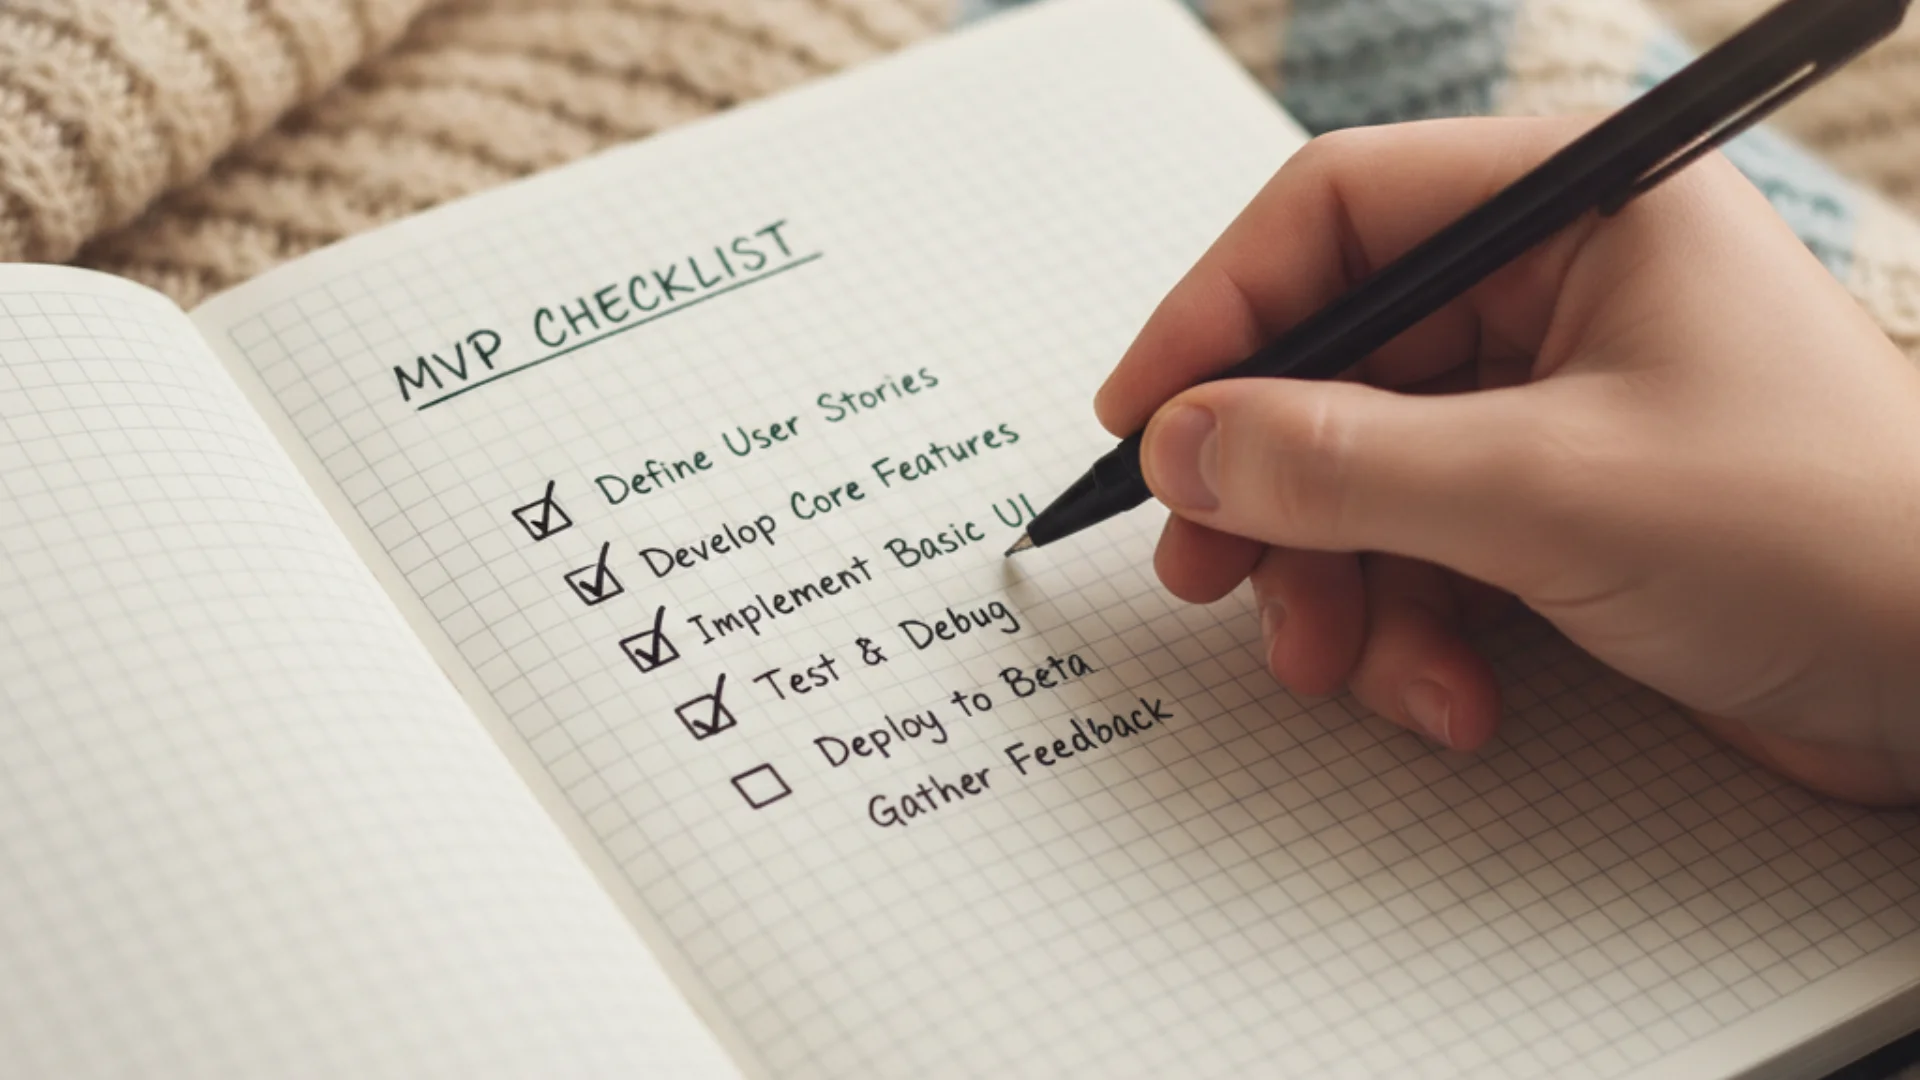 MVP CHECKLIST
Define User Stories
Develop Core Features
Implement Basic UI
Test & Debug
Deploy to Beta
Gather Feedback